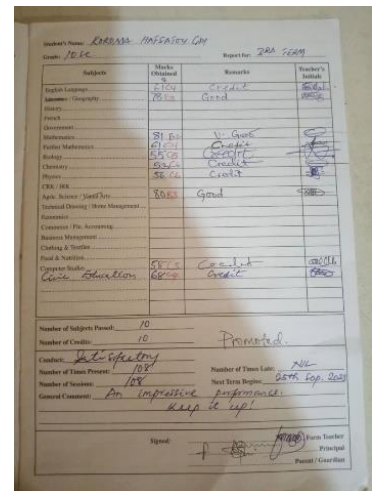 Student's Name: KARGBO HASSATOU GM
Grade: 10 SC Report for: 3RD TERM
Subjects Marks Obtained % Remarks Teacher's Initials
English Language Credit
Literature / Geography 78 Good
History
French
Government
Mathematics 81 V. Good
Further Mathematics 61 Credit
Biology 55 C6 Credit
Chemistry Credit
Physics 56 C6 Credit
CRK / IRK
Agric. Science 80 Good
Technical Drawing / Home Management
Economics
Commerce / Fin. Accounting
Business Management
Clothing & Textiles
Food & Nutrition
Computer Studies 58 Credit
Civic Education 68 Credit
Number of Subjects Passed: 10
Number of Credits: 10 Promoted.
Conduct: Satisfactory
Number of Times Present: 108 Number of Times Late: NIL
Number of Sessions: 108 Next Term Begins: 25th Sep.
General Comment: An impressive performance.
Keep it up!
Signed: Form Teacher
Principal
Parent / Guardian